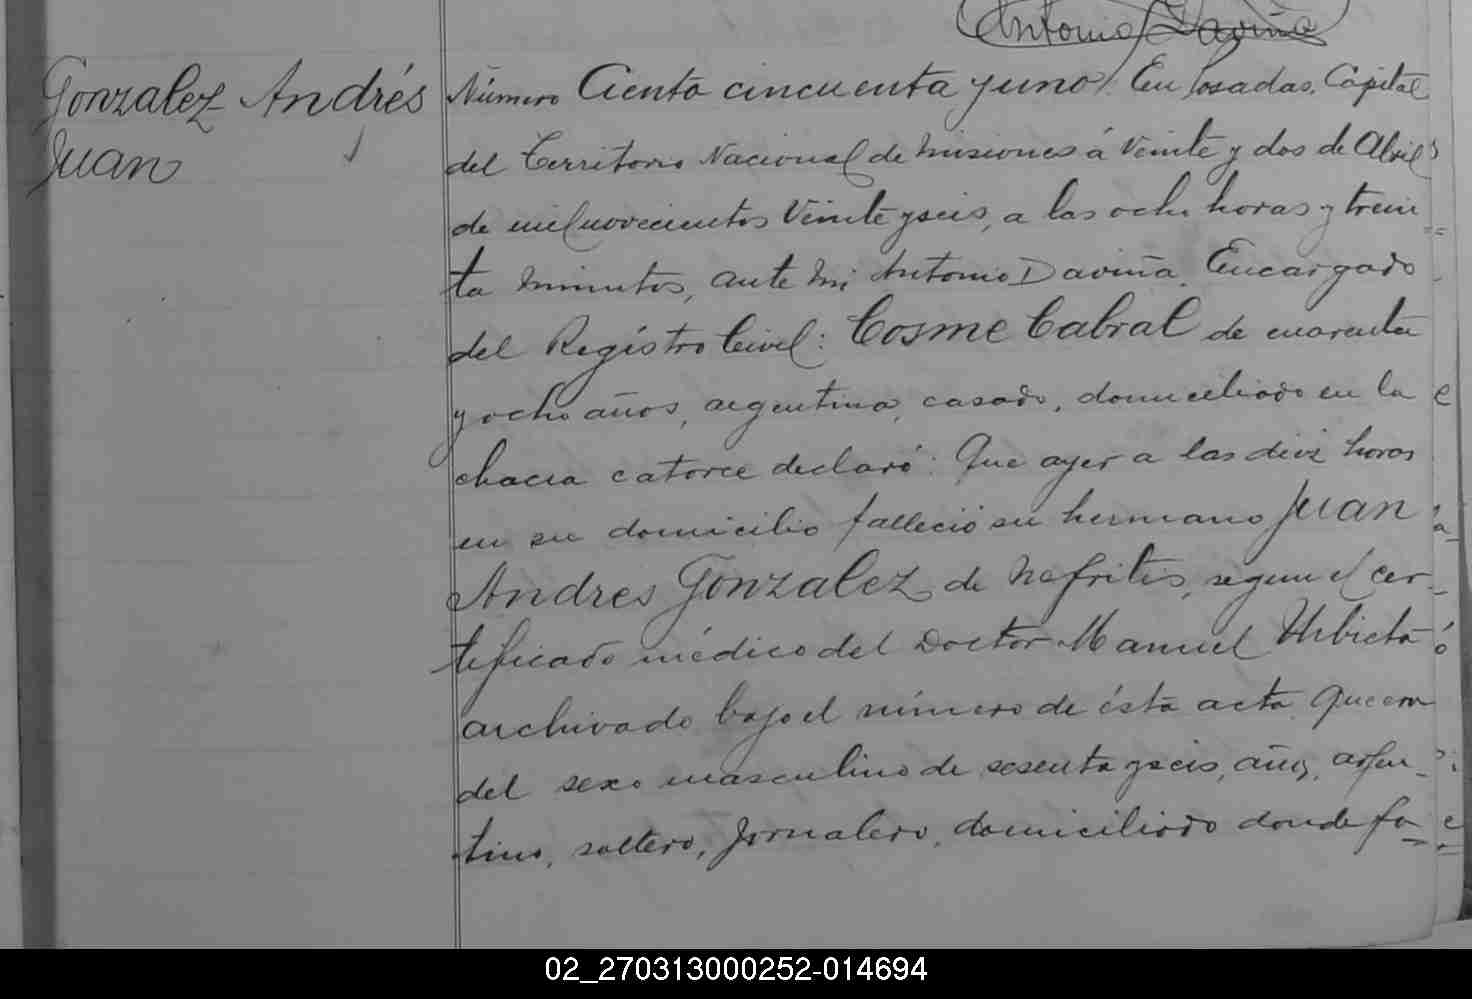 Antonio Daviña
Gonzalez Andrés
Juan
Número Ciento cincuenta y uno. En Posadas, Capital
del Territorio Nacional de Misiones á Veinte y dos de Abril
de mil novecientos Veinte y seis, a las ocho horas y trein
ta minutos, ante mi Antonio Daviña, Encargado
del Registro Civil: Cosme Cabral de cuarenta
y ocho años, argentino, casado, domiciliado en la
chacra catorce declaró: Que ayer a las diez horas
en su domicilio falleció su hermano Juan
Andres Gonzalez de Nefritis, segun el cer-
tificado médico del Doctor Manuel Urbieta
archivado bajo el número de ésta acta. Que era
del sexo masculino de sesenta y seis, años, argen-
tino, soltero, Jornalero, domiciliado donde fa-
02_270313000252-014694